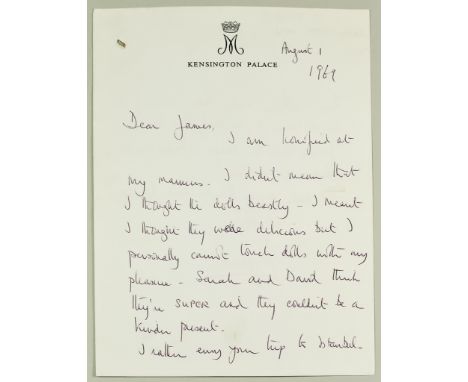 M
KENSINGTON PALACE
August 1
1969
Dear James,
I am horrified at
my manners. I didn't mean that
I thought the dolls beastly - I meant
I thought they were delicious but I
personally cannot touch dolls with any
pleasure - Sarah and David think
they're SUPER and they couldn't be a
kinder present.
I rather envy your trip to Istanbul.